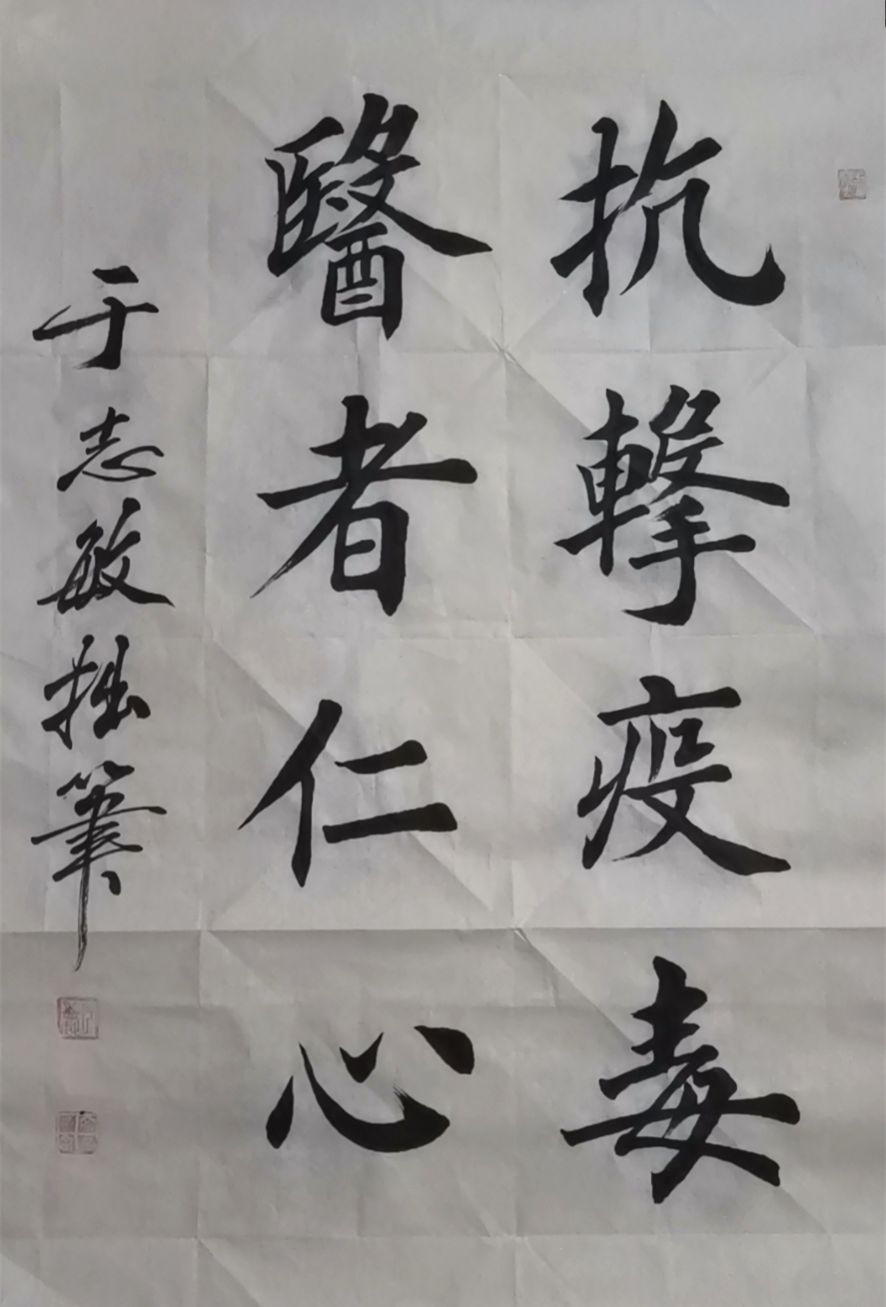 抗擊疫毒
醫者仁心
于志敏拙筆